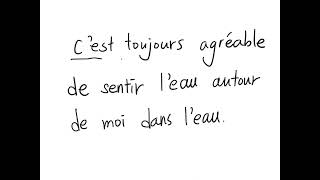 c'est toujours agréable
de sentir l'eau autour
de moi dans l'eau.